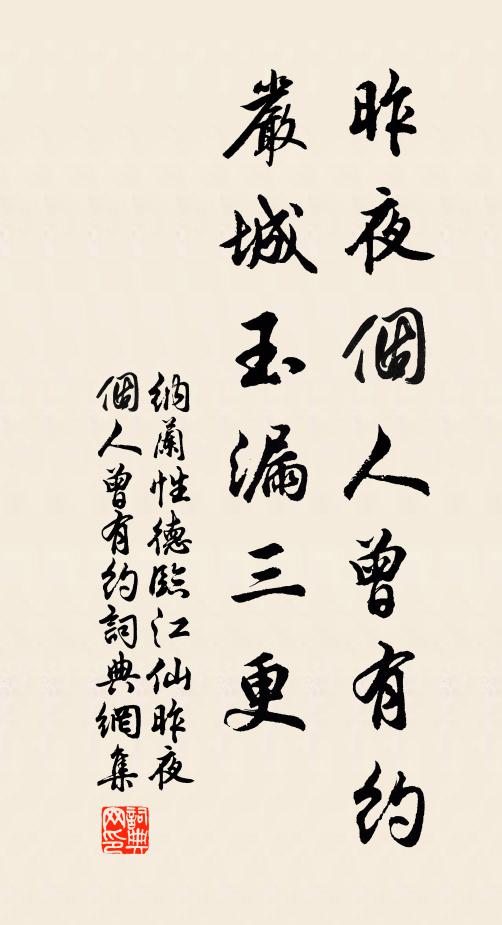 昨夜個人曾有約
嚴城玉漏三更
納蘭性德臨江仙昨夜
個人曾有約詞典網集
詞典网印